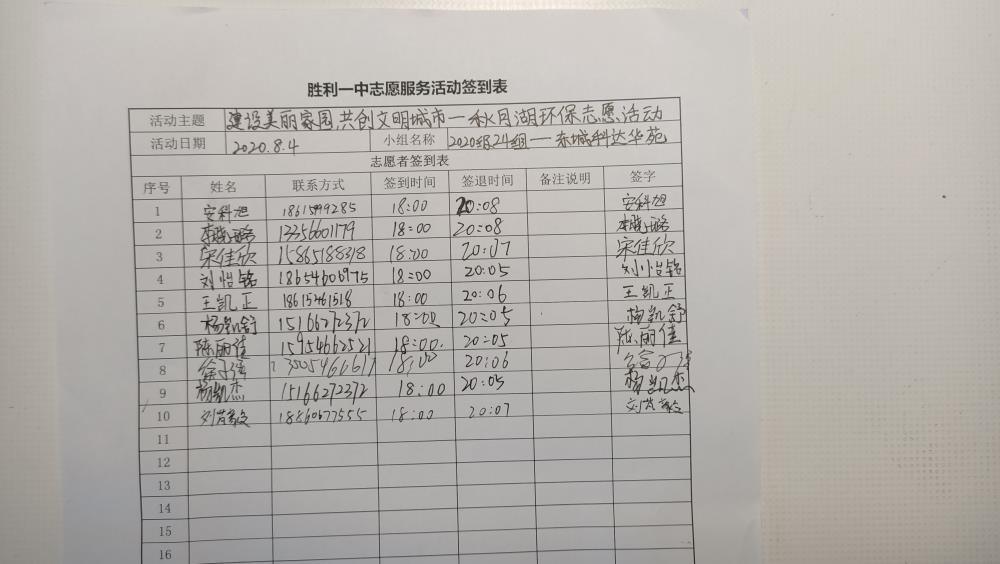 胜利一中志愿服务活动签到表
活动主题 建设美丽家园,共创文明城市一秋月湖环保志愿活动
活动日期 2020.8.4 小组名称 2020级24组一东城科达华苑
志愿者签到表
序号 姓名 联系方式 签到时间 签退时间 备注说明 签字
1 安科旭 18:00 20:08 安科旭
2 13356601179 18:00 20:08
3 宋佳欣 15865188318 18:00 20:07 宋佳欣
4 刘怡铭 18654606975 18:00 20:05 刘怡铭
5 王凯正 18615461518 18:00 20:06 王凯正
6 杨凯舒 15166272372 18:00 20:05 杨凯舒
7 陈丽佳 15954662521 18:00 20:05 陈丽佳
8 18:00 20:06
9 杨凯杰 15166272372 18:00 20:05 杨凯杰
10 18860677555 18:00 20:07
11
12
13
14
15
16